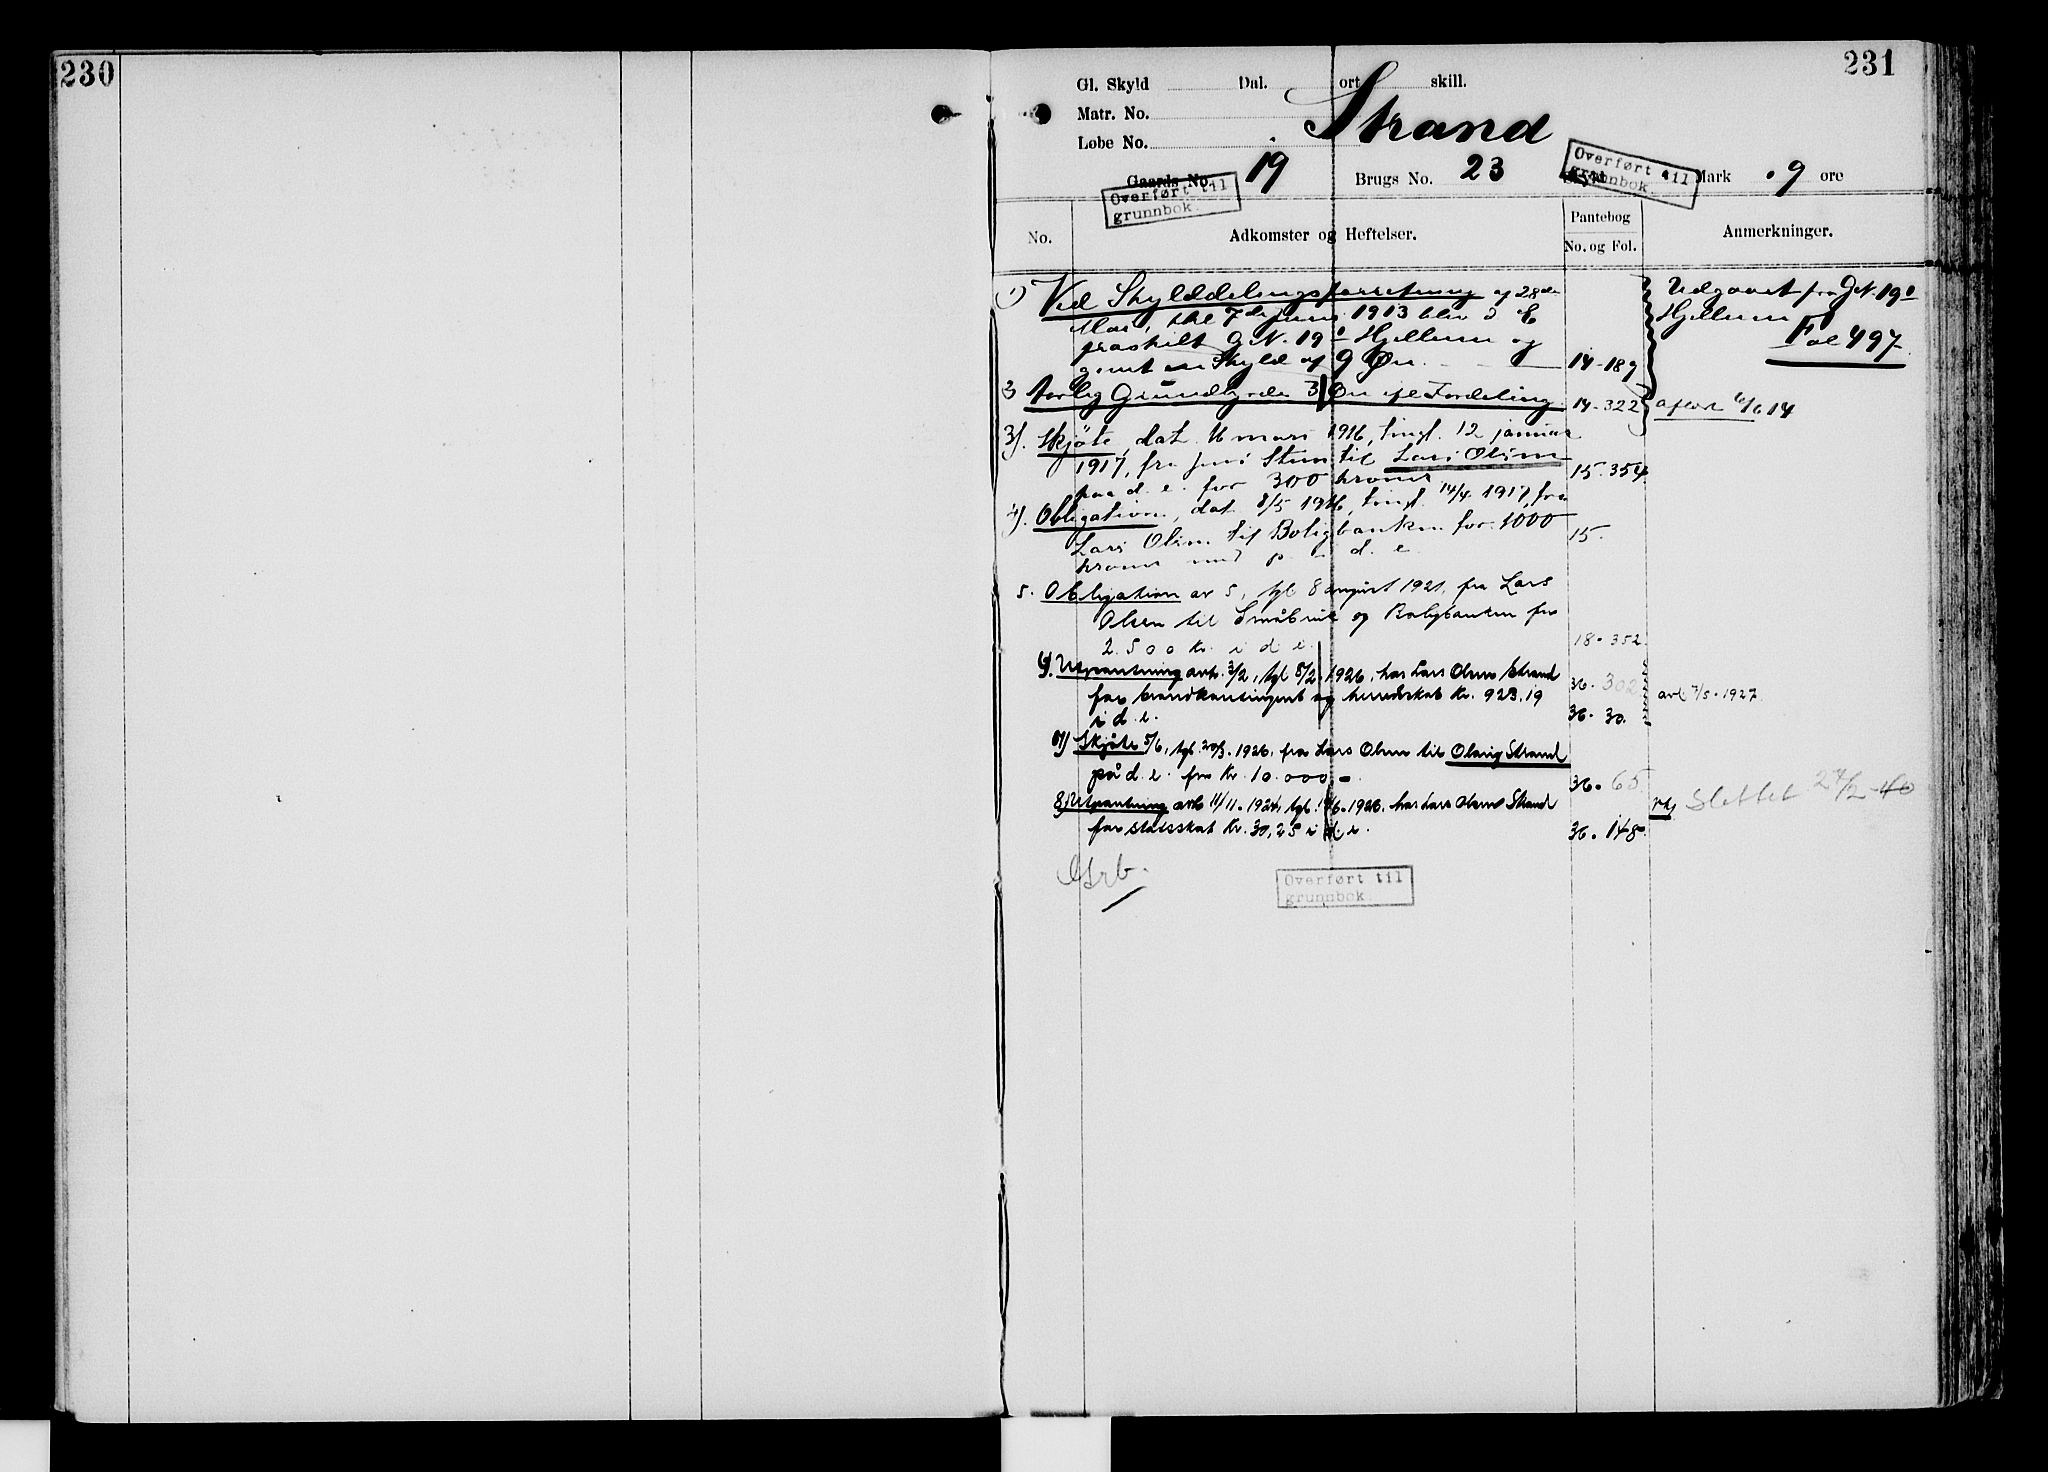 230
231
Gl. Skyld Dal. ort skill.
Matr. No.
Strand
Løbe No.
Gaards No. 19 Brugs No. 23 Mark .9 øre
Overført til
grunnbok.
Overført til
grunnbok.
No. Adkomster og Heftelser. Pantebog Anmerkninger.
No. og Fol.
1) Ved Skylddelingsforretning af 28de
Mai, thl 7de juni 1913 blev d. E.
fraskilt G.N. 19 1 Hjellum og
givet en Skyld af 9 Øre. 14-189
Udgaaet fra G.N. 19 1
Hjellum
Fol 497
2 Aarlig Grundbyrde 3 Øre efl Fordeling 14-322
aflöst 6/6 14
3). Skjöte, dat. 16 mars 1916, tingl. 12 januar
1917, fra Jens Steen til Lars Olsen
paa d. e. for 300 kroner 15-354
4). Obligation, dat. 8/5 1916, tingl. 14/4 1917, fra
Lars Olsen til Boligbanken for 1000
kroner med p i d. e. 15-
5. Obligation av 5, tgl 8 august 1921, fra Lars
Olsen til Småbruk og Boligbanken for
2.500 kr. i d e. 18-352
6). Utpantning avh. 3/2, tgl 5/2 1926, hos Lars Olsen Strand
for brandkontingent og herredsskat kr. 923.19
i d. e.
36-302
36-30.
avl 7/5-1927.
7) Skjøte 5/6, tgl. 20/3. 1926, fra Lars Olsen til Olavig Strand
på d. e. for kr. 10.000-. 36-65
8) Utpantning avh 11/11. 1924, tgl. 1926. hos Lars Olsen Strand
for statsskat kr. 30,25 i d. e. 36-148.
Slettet 27/2-40
Overført til
grunnbok.